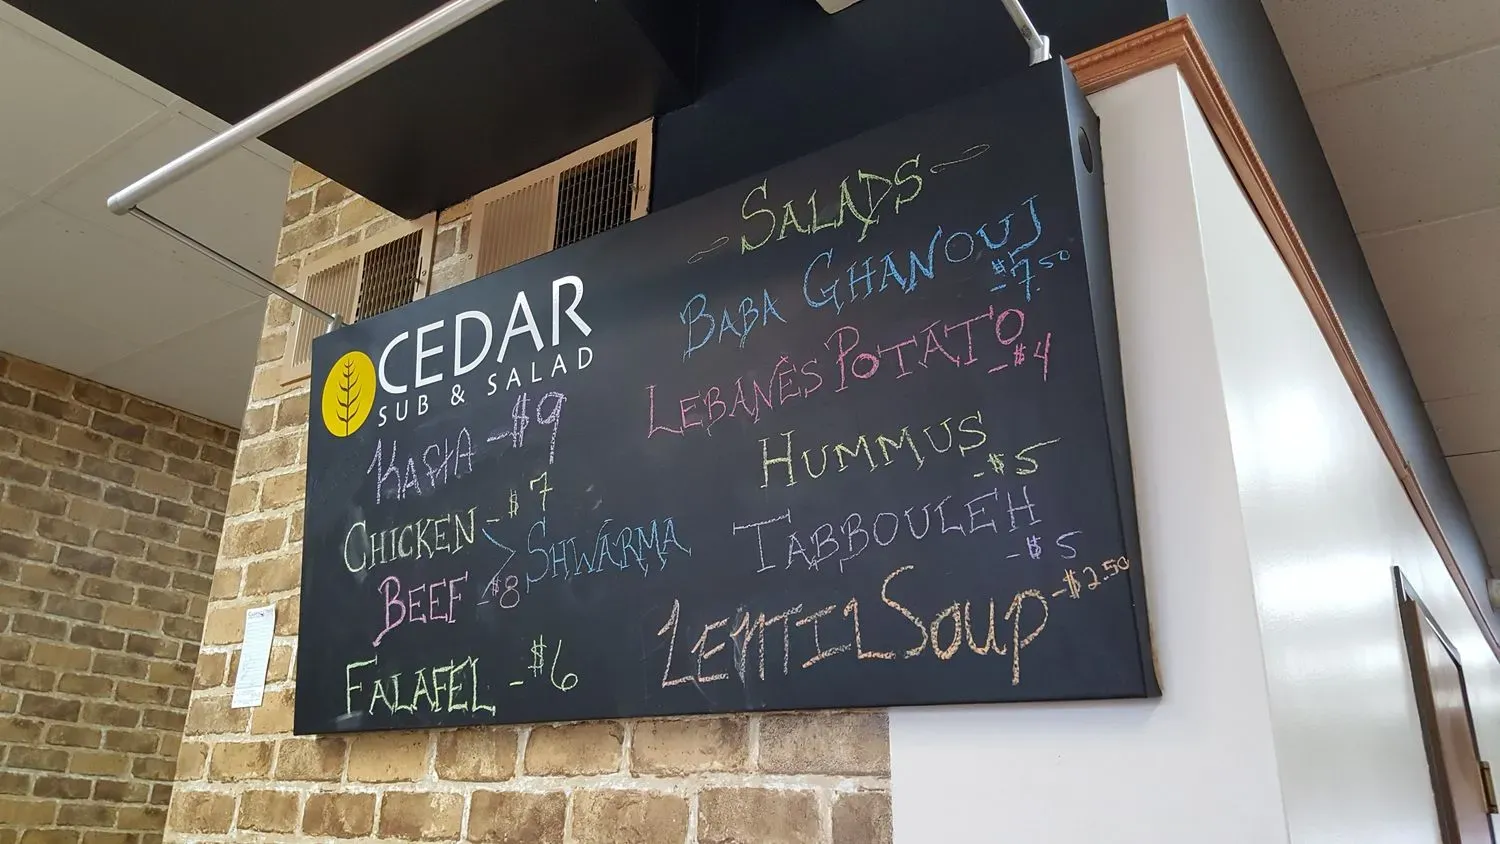 CEDAR
SUB & SALAD
KAFTA - $9
CHICKEN - $7
BEEF - $8
SHWARMA
FALAFEL - $6
SALADS
BABA GHANOUJ
- $7.50
LEBANÊS POTÁTO
- $4
HUMMUS
- $5
TABBOULEH
- $5
LENTIL SOUP - $2.50